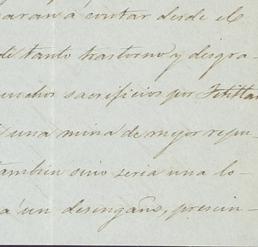 aran á contar desde el
de tanto trastorno y desgra-
muchos sacrificios por
una mina de mejor repu-
tambien sino seria una lo-
a un desengaño, prescin-